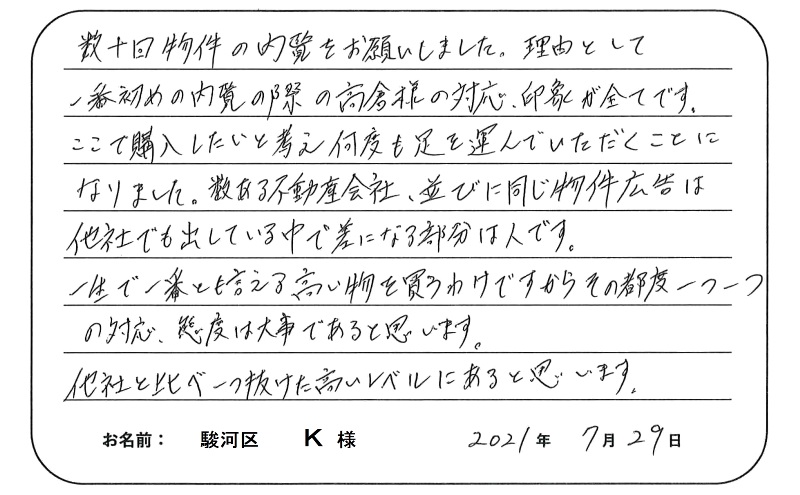 数十回物件の内覧をお願いしました。理由として
一番初めの内覧の際の高倉様の対応、印象が全てです。
ここで購入したいと考え何度も足を運んでいただくことに
なりました。数ある不動産会社、並びに同じ物件広告は
他社でも出している中で差になる部分は人です。
一生で一番とも言える高い物を買うわけですからその都度一つ一つ
の対応、態度は大事であると思います。
他社と比べ一つ抜けた高いレベルにあると思います。
お名前： 駿河区 K 様 2021年 7月29日